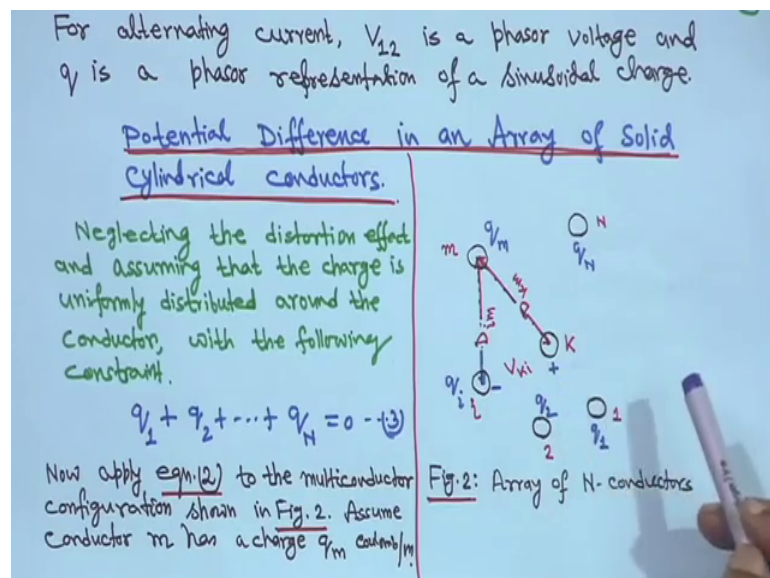 For alternating current, V12 is a phasor voltage and
q is a phasor representation of a sinusoidal charge.
Potential Difference in an Array of Solid
Cylindrical conductors.
Neglecting the distortion effect
and assuming that the charge is
uniformly distributed around the
conductor, with the following
constraint.
q1 + q2 + --- + qN = 0 --(3)
Now apply eqn.(2) to the multiconductor
configuration shown in Fig. 2. Assume
conductor m has a charge qm coulomb/m.
m
qm
N
qN
Dmi
K
+
Vki
qi
-
i
q2
2
1
q1
Fig. 2: Array of N-conductors